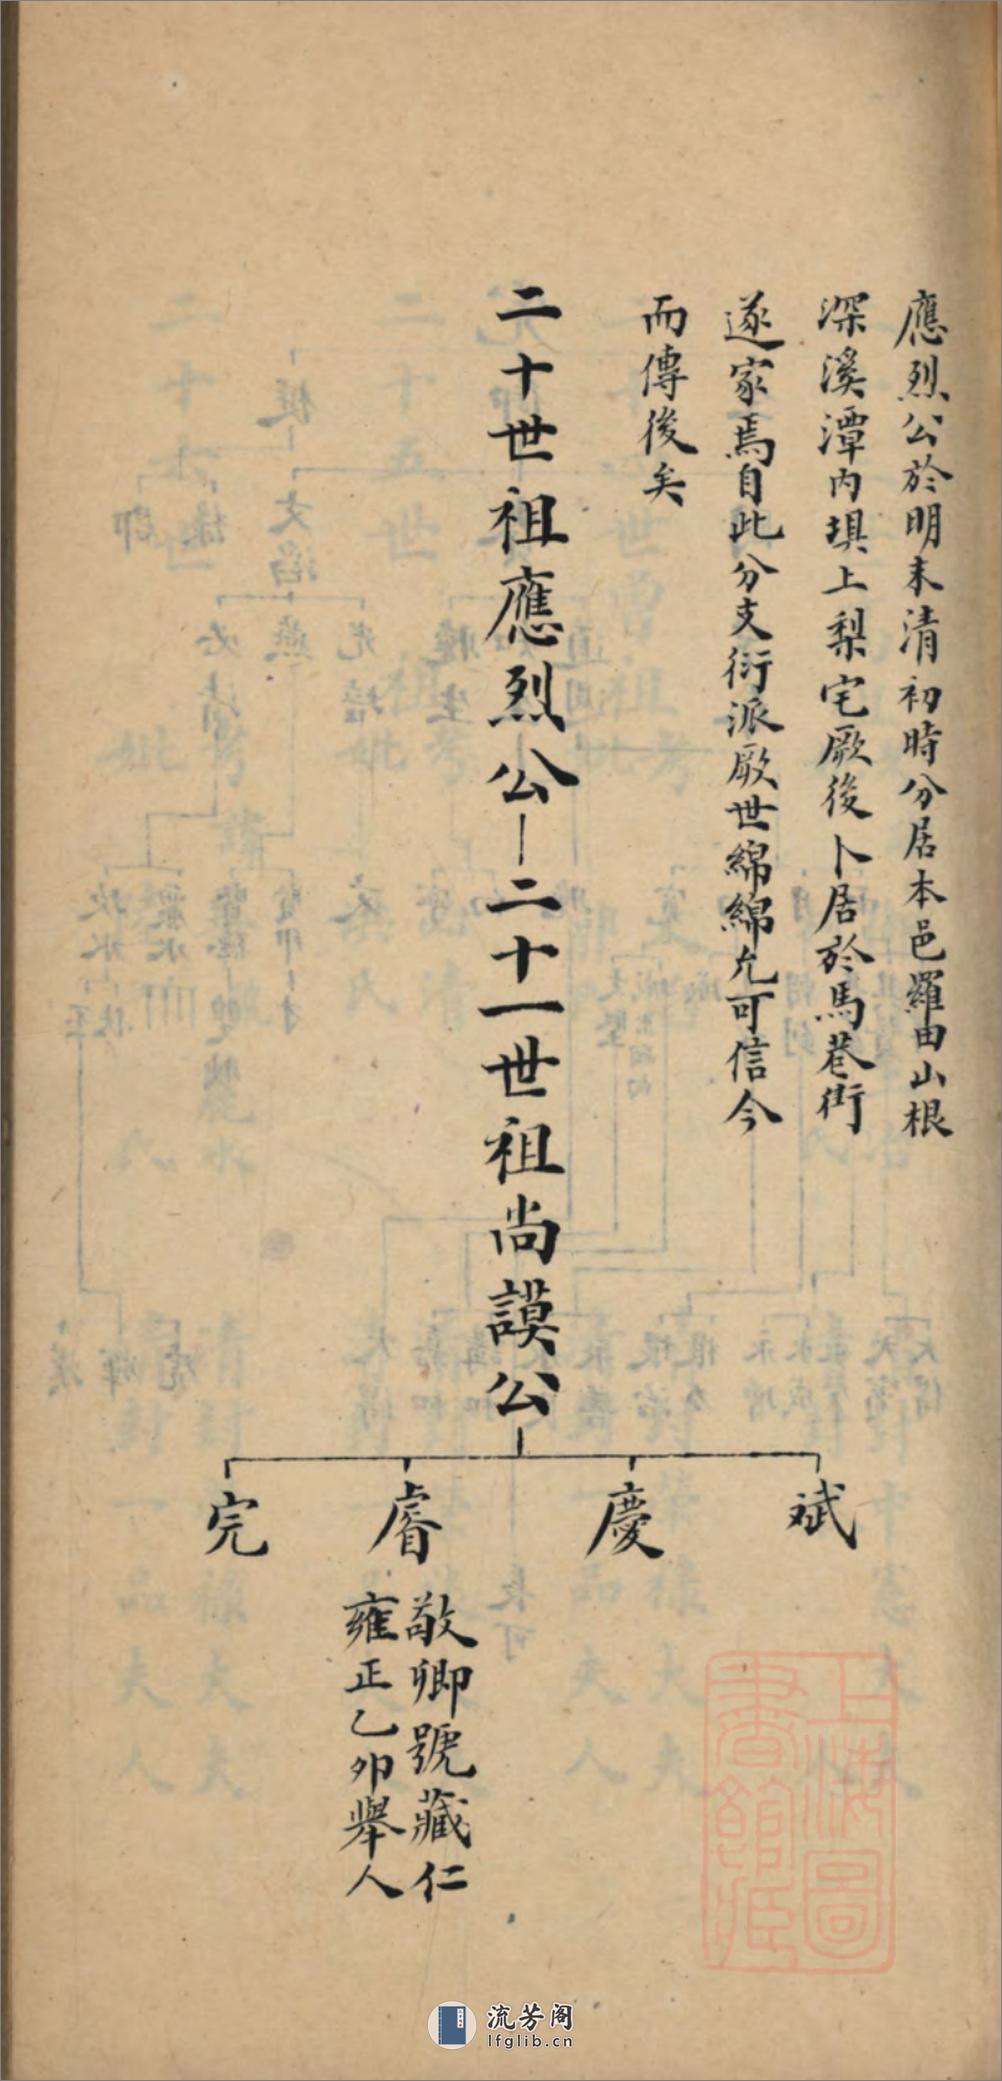 應烈公於明末清初時分居本邑羅田山根
深溪潭內垻上梨宅厥後卜居於馬巷街
遂家焉自此分支衍派厥世綿綿允可信今
而傳後矣
二十世祖應烈公
二十一世祖尚謨公
斌
慶
睿
敬卿號藏仁
雍正乙卯舉人
完
上海圖
書館藏
流芳阁
lfglib.cn